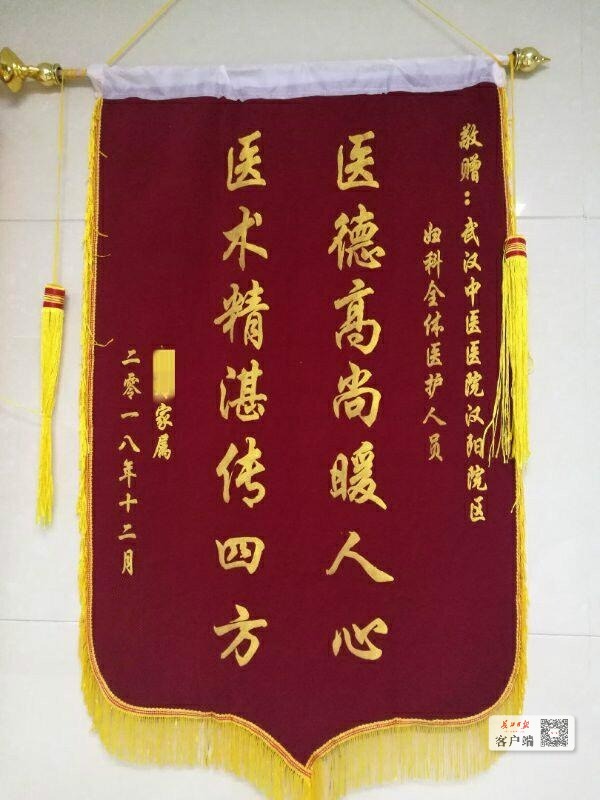 敬赠：武汉中医医院汉阳院区
妇科全体医护人员
医德高尚暖人心
医术精湛传四方
家属
二零一八年十二月
长江日报
客户端